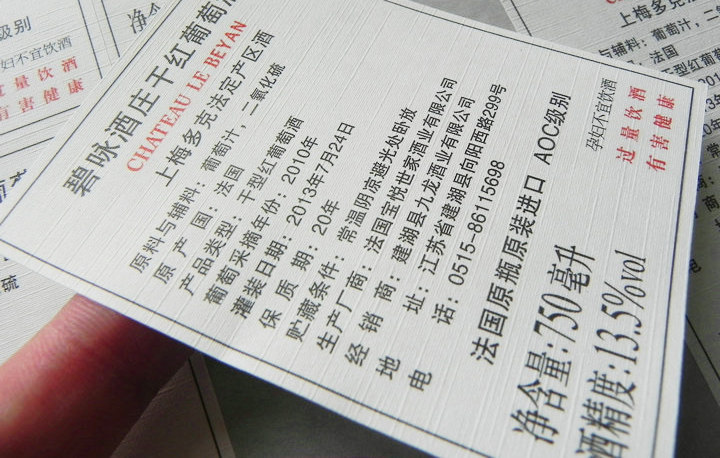 碧咏酒庄干红葡萄
CHATEAU LE BEYAN
上梅多克法定产区酒
原料与辅料：葡萄汁，二氧化硫
原产国：法国
产品类型：干型红葡萄酒
葡萄采摘年份：2010年
灌装日期：2013年7月24日
保质期：20年
贮藏条件：常温阴凉避光处卧放
生产厂商：法国宝悦世家酒业有限公司
经销商：建湖县九龙酒业有限公司
地址：江苏省建湖县向阳西路299号
电话：0515-86115698
法国原瓶原装进口 AOC级别
净含量:750毫升
酒精度:13.5%vol
孕妇不宜饮酒
过量饮酒
有害健康
级别
孕妇不宜饮酒
过量饮酒
有害健康
净含
上梅多克法定
与辅料：葡萄汁，
国：法国
型：干型红葡萄
硫